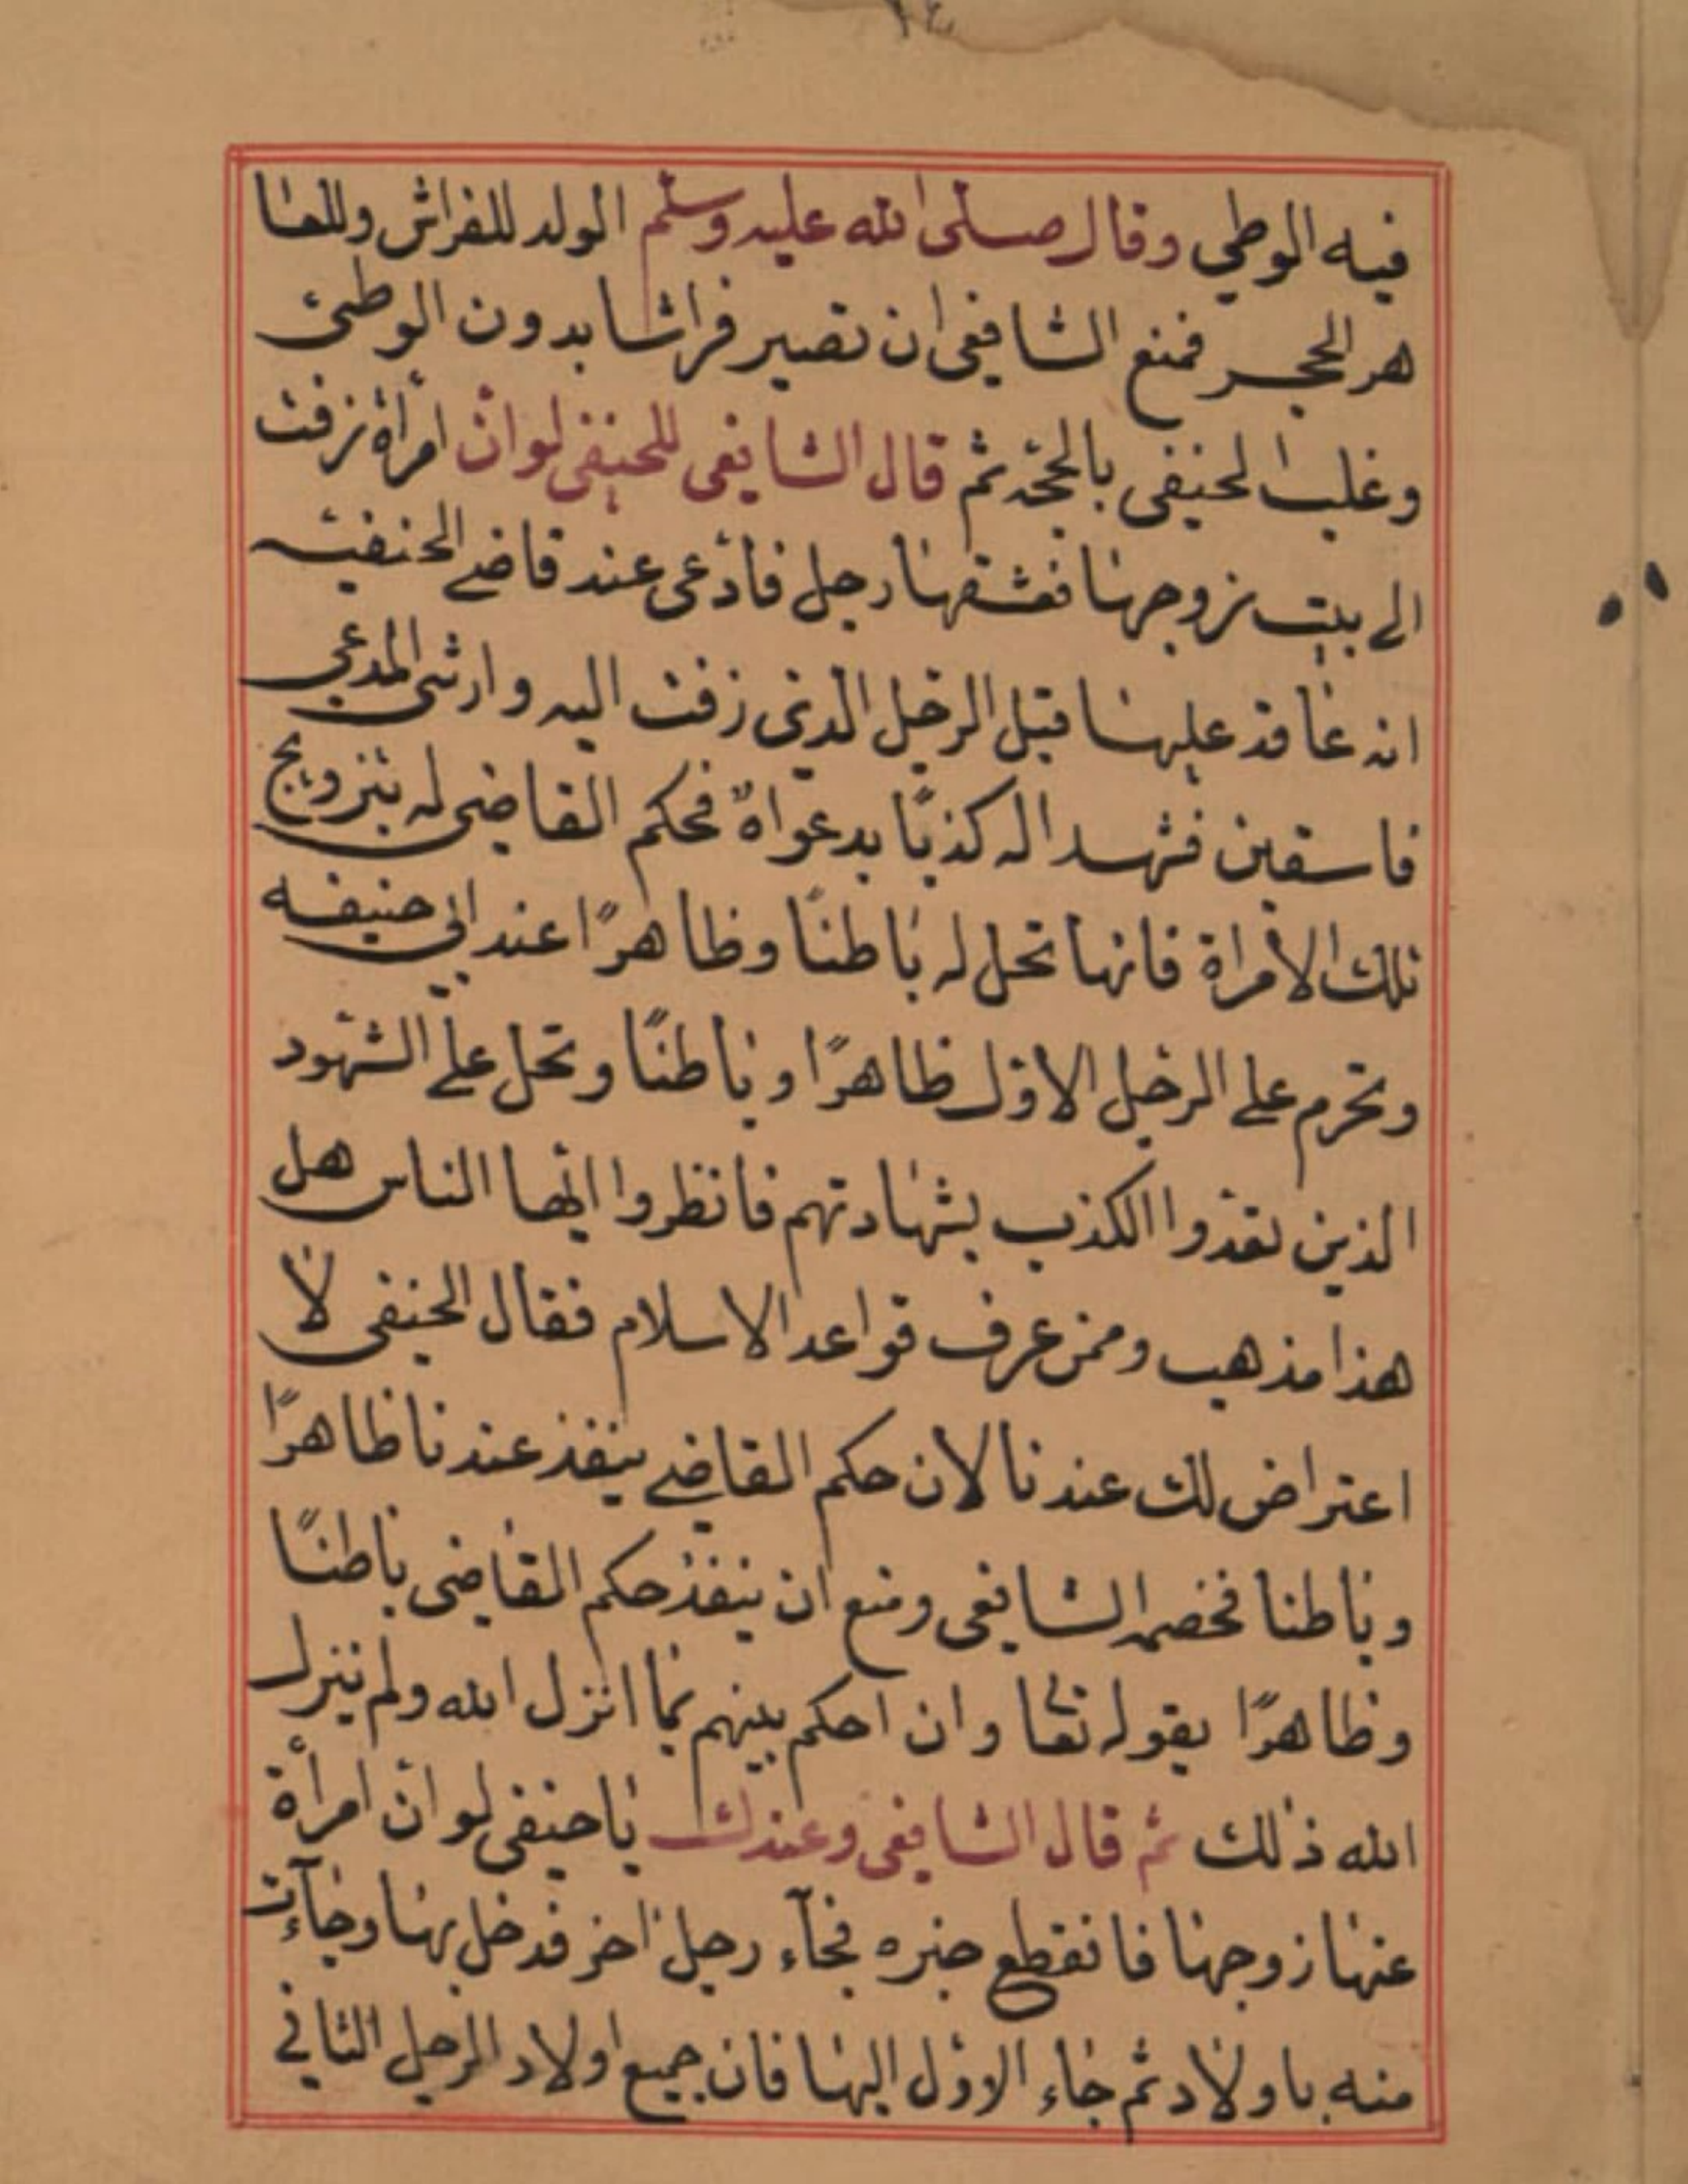 فيه الوطي وقال صلى الله عليه وسلم الولد للفراش وللعا
هر الحجر فمنع الشافعي ان تصير فراشا بدون الوطئ
وغلب الحنيفي بالحجّة ثم قال الشافعي للحنيفي لو انّ امرأة زفت
الى بيت زوجها فعشقها رجل فادّعى عند قاضي الحنفيّه
انه عاقد عليها قبل الرجل الذي زفت اليه وارشى المدعي
فاسقين فشهدا له كذبًا بدعواه فحكم القاضي له بتزويج
تلك الامراة فانها تحل له باطنًا وظاهرًا عند ابي حنيفه
وتحرم على الرجل الاوّل ظاهرًا وباطنًا وتحل على الشهود
الذين تعمدوا الكذب بشهادتهم فانظروا ايّها الناس هل
هذا مذهب وممن عرف قواعد الاسلام فقال الحنيفي لا
اعتراض لك عندنا لان حكم القاضي ينفذ عندنا ظاهرًا
وباطنا فخصمه الشافعي ومنع ان ينفذ حكم القاضي باطنًا
وظاهرًا بقوله تعا وان احكم بينهم بما انزل الله ولم ينزل
الله ذلك ثم قال الشافعي وعندك يا حنيفي لو انّ امرأة
عنها زوجها فانقطع خبره فجآء رجل اخر فدخل بها وجآءت
منه باولاد ثم جاء الاوّل اليها فان جميع اولاد الرجل الثاني